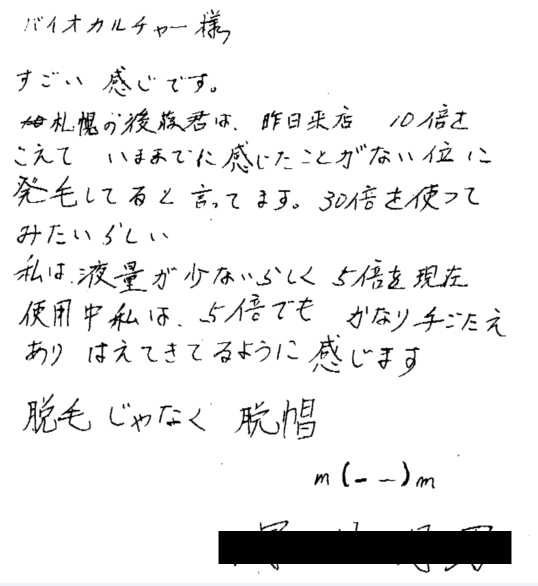 バイオカルチャー様
すごい 感じです。
札幌の後藤君は、昨日来店 10倍を
こえて いままでに感じたことがない位に
発毛してると言ってます。30倍を使って
みたいらしい
私は、液量が少ないらしく 5倍を現在
使用中私は、5倍でも かなり手ごたえ
あり はえてきてるように感じます
脱毛じゃなく 脱帽
m(--)m